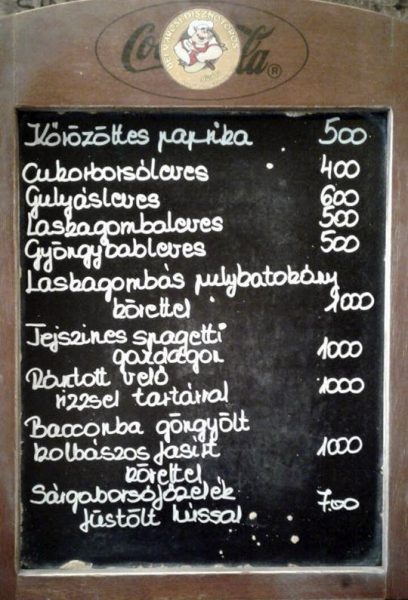 BELVÁROSI DISZNÓTOROS
Coca-Cola®
Körözöttes paprika 500
Cukorborsóleves 400
Gulyásleves 600
Laskagombaleves 500
Gyöngybableves 500
Laskagombás pulybatokány
körettel 1000
Tejszines spagetti
gazdagon 1000
Rántott velő 1000
rizzsel tartárral
Bacconba göngyölt
kolbászos fasírt 1000
körettel
Sárgaborsófőzelék 700
füstölt hússal